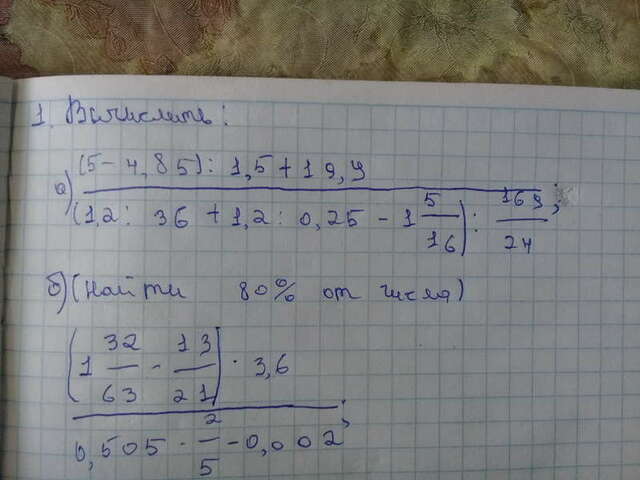 1. Вычислить:
а) (5 - 4,85) : 1,5 + 19,9
(1,2 : 36 + 1,2 : 0,25 - 1 5/16) : 169/24;
б) (найти 80% от числа)
(1 32/63 - 13/21) · 3,6
0,505 · 2/5 - 0,002;